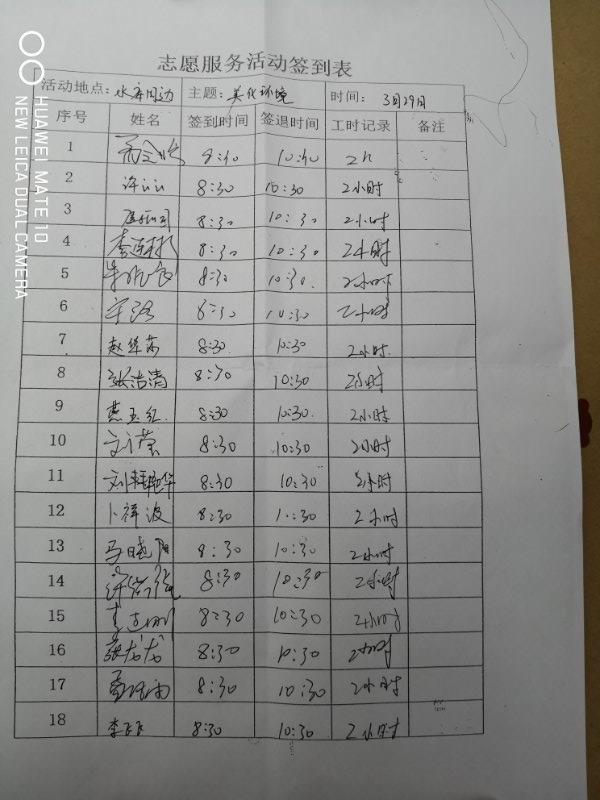 志愿服务活动签到表
活动地点: 水库周边 主题: 美化环境 时间: 3月29日
序号 姓名 签到时间 签退时间 工时记录 备注
1 8:30 10:30 2h
2 8:30 10:30 2小时
3 8:30 10:30 2小时
4 李连彬 8:30 10:30 2小时
5 8:30 10:30. 2小时
6 8:30 10:30 2小时
7 8:30 10:30 2小时
8 张洁清 8:30 10:30 2小时
9 燕玉红 8:30 10:30. 2小时
10 8:30 10:30 2小时
11 8:30 10:30 2小时
12 卜祥波 8:30 10:30 2小时
13 马晓阳 8:30 10:30 2小时
14 8:30 10:30 2小时
15 8:30 10:30 2小时
16 张龙龙 8:30 10:30 2小时
17 8:30 10:30 2小时
18 8:30 10:30 2小时
HUAWEI MATE 10
NEW LEICA DUAL CAMERA